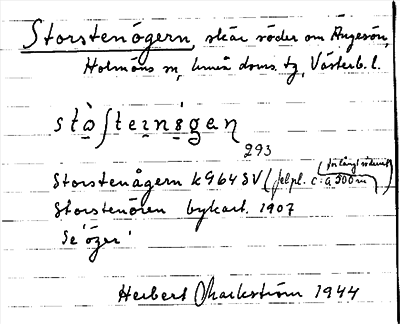 Storstenögern, skär söder om Ängesön,
Holmöns sn, Umeå doms. tg, Västerb. l.
293
Storstenågern k G64SV (felpl. c:a 300 m för långt söderut)
Storstenören bykart. 1907
Se 'öger'
Herbert Markström 1944